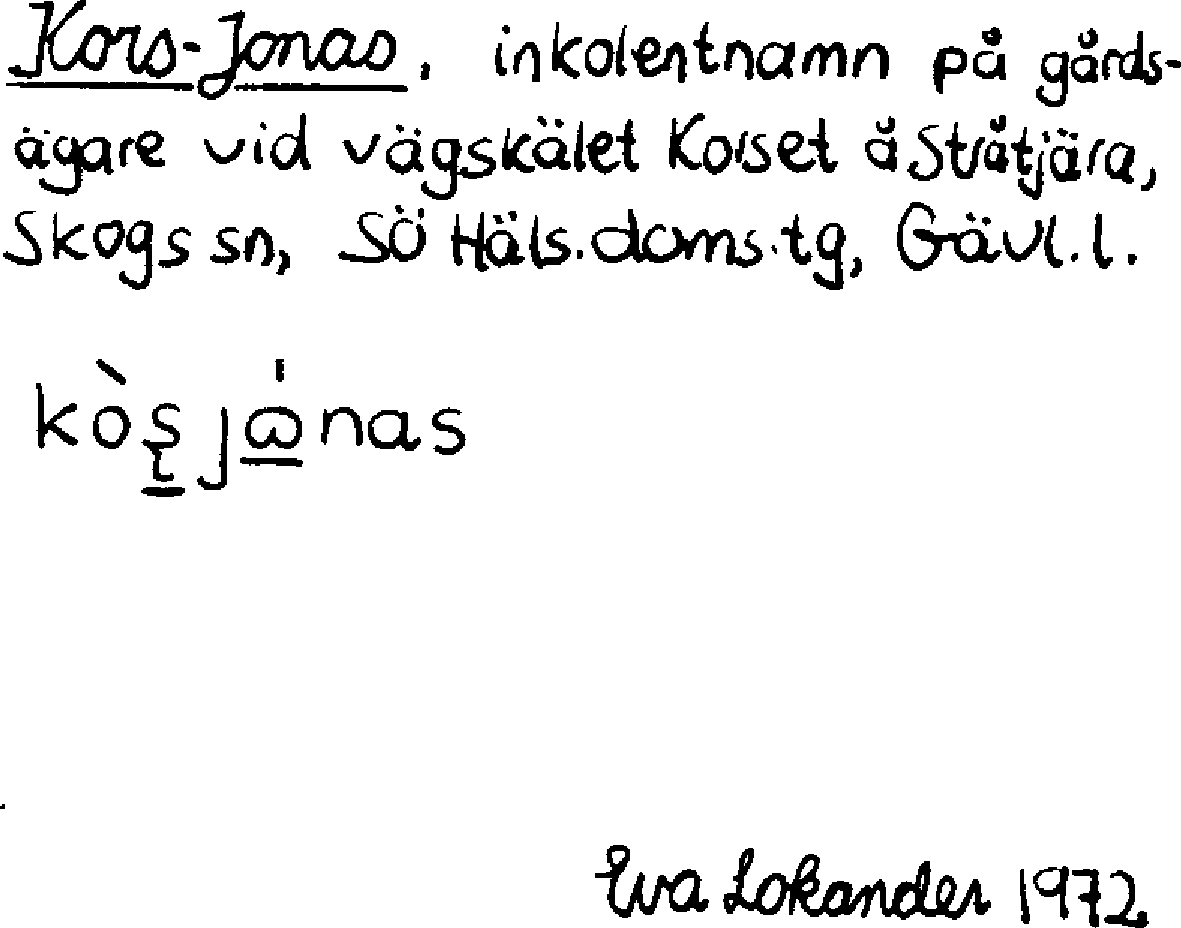 Kors-Jonas, inkolentnamn på gårds-
ägare vid vägskälet Korset å Stråtjära,
Skogs sn, SÖ Häls. doms.tg, Gävl.l.
kò̀ʂjω̇nas
Eva Lokander 1972